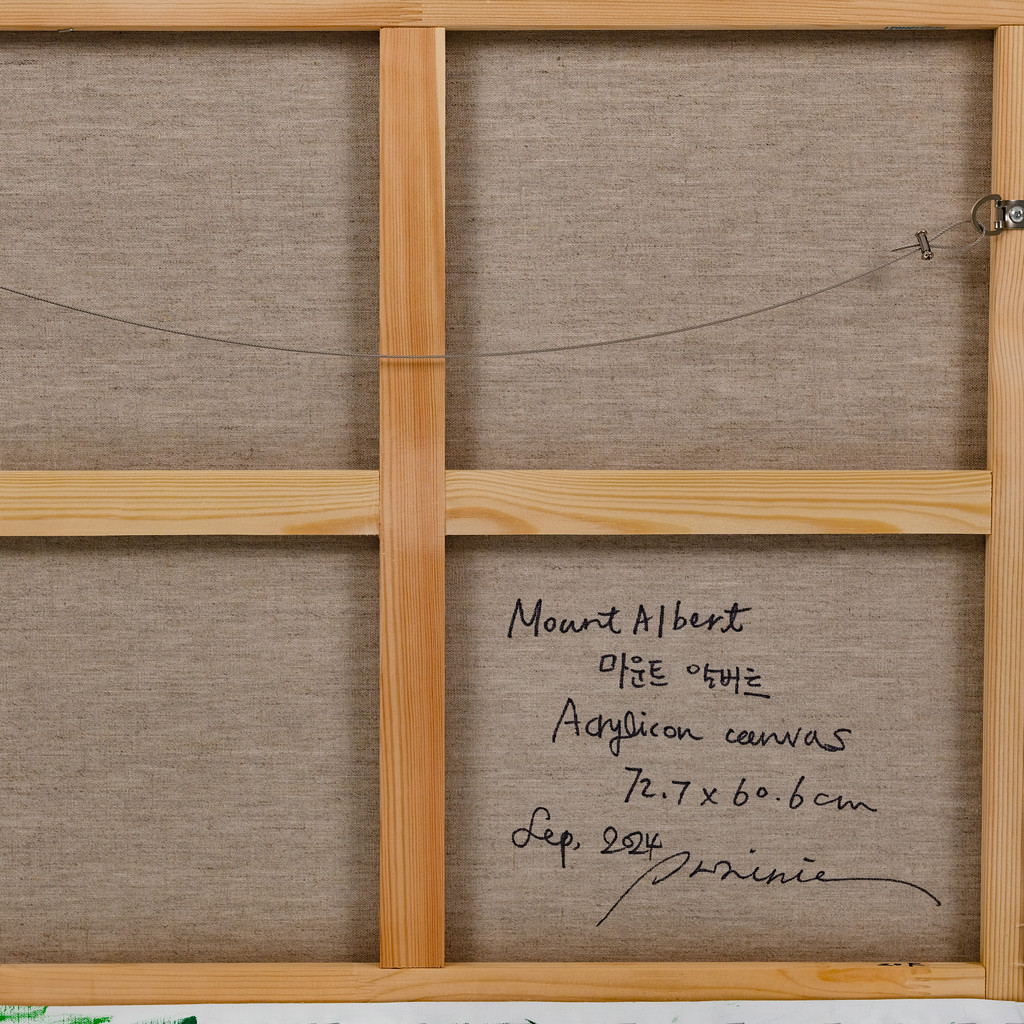 Mount Albert
마운트 알버트
Acrylicon canvas
72.7 x 60.6 cm
Sep. 2024